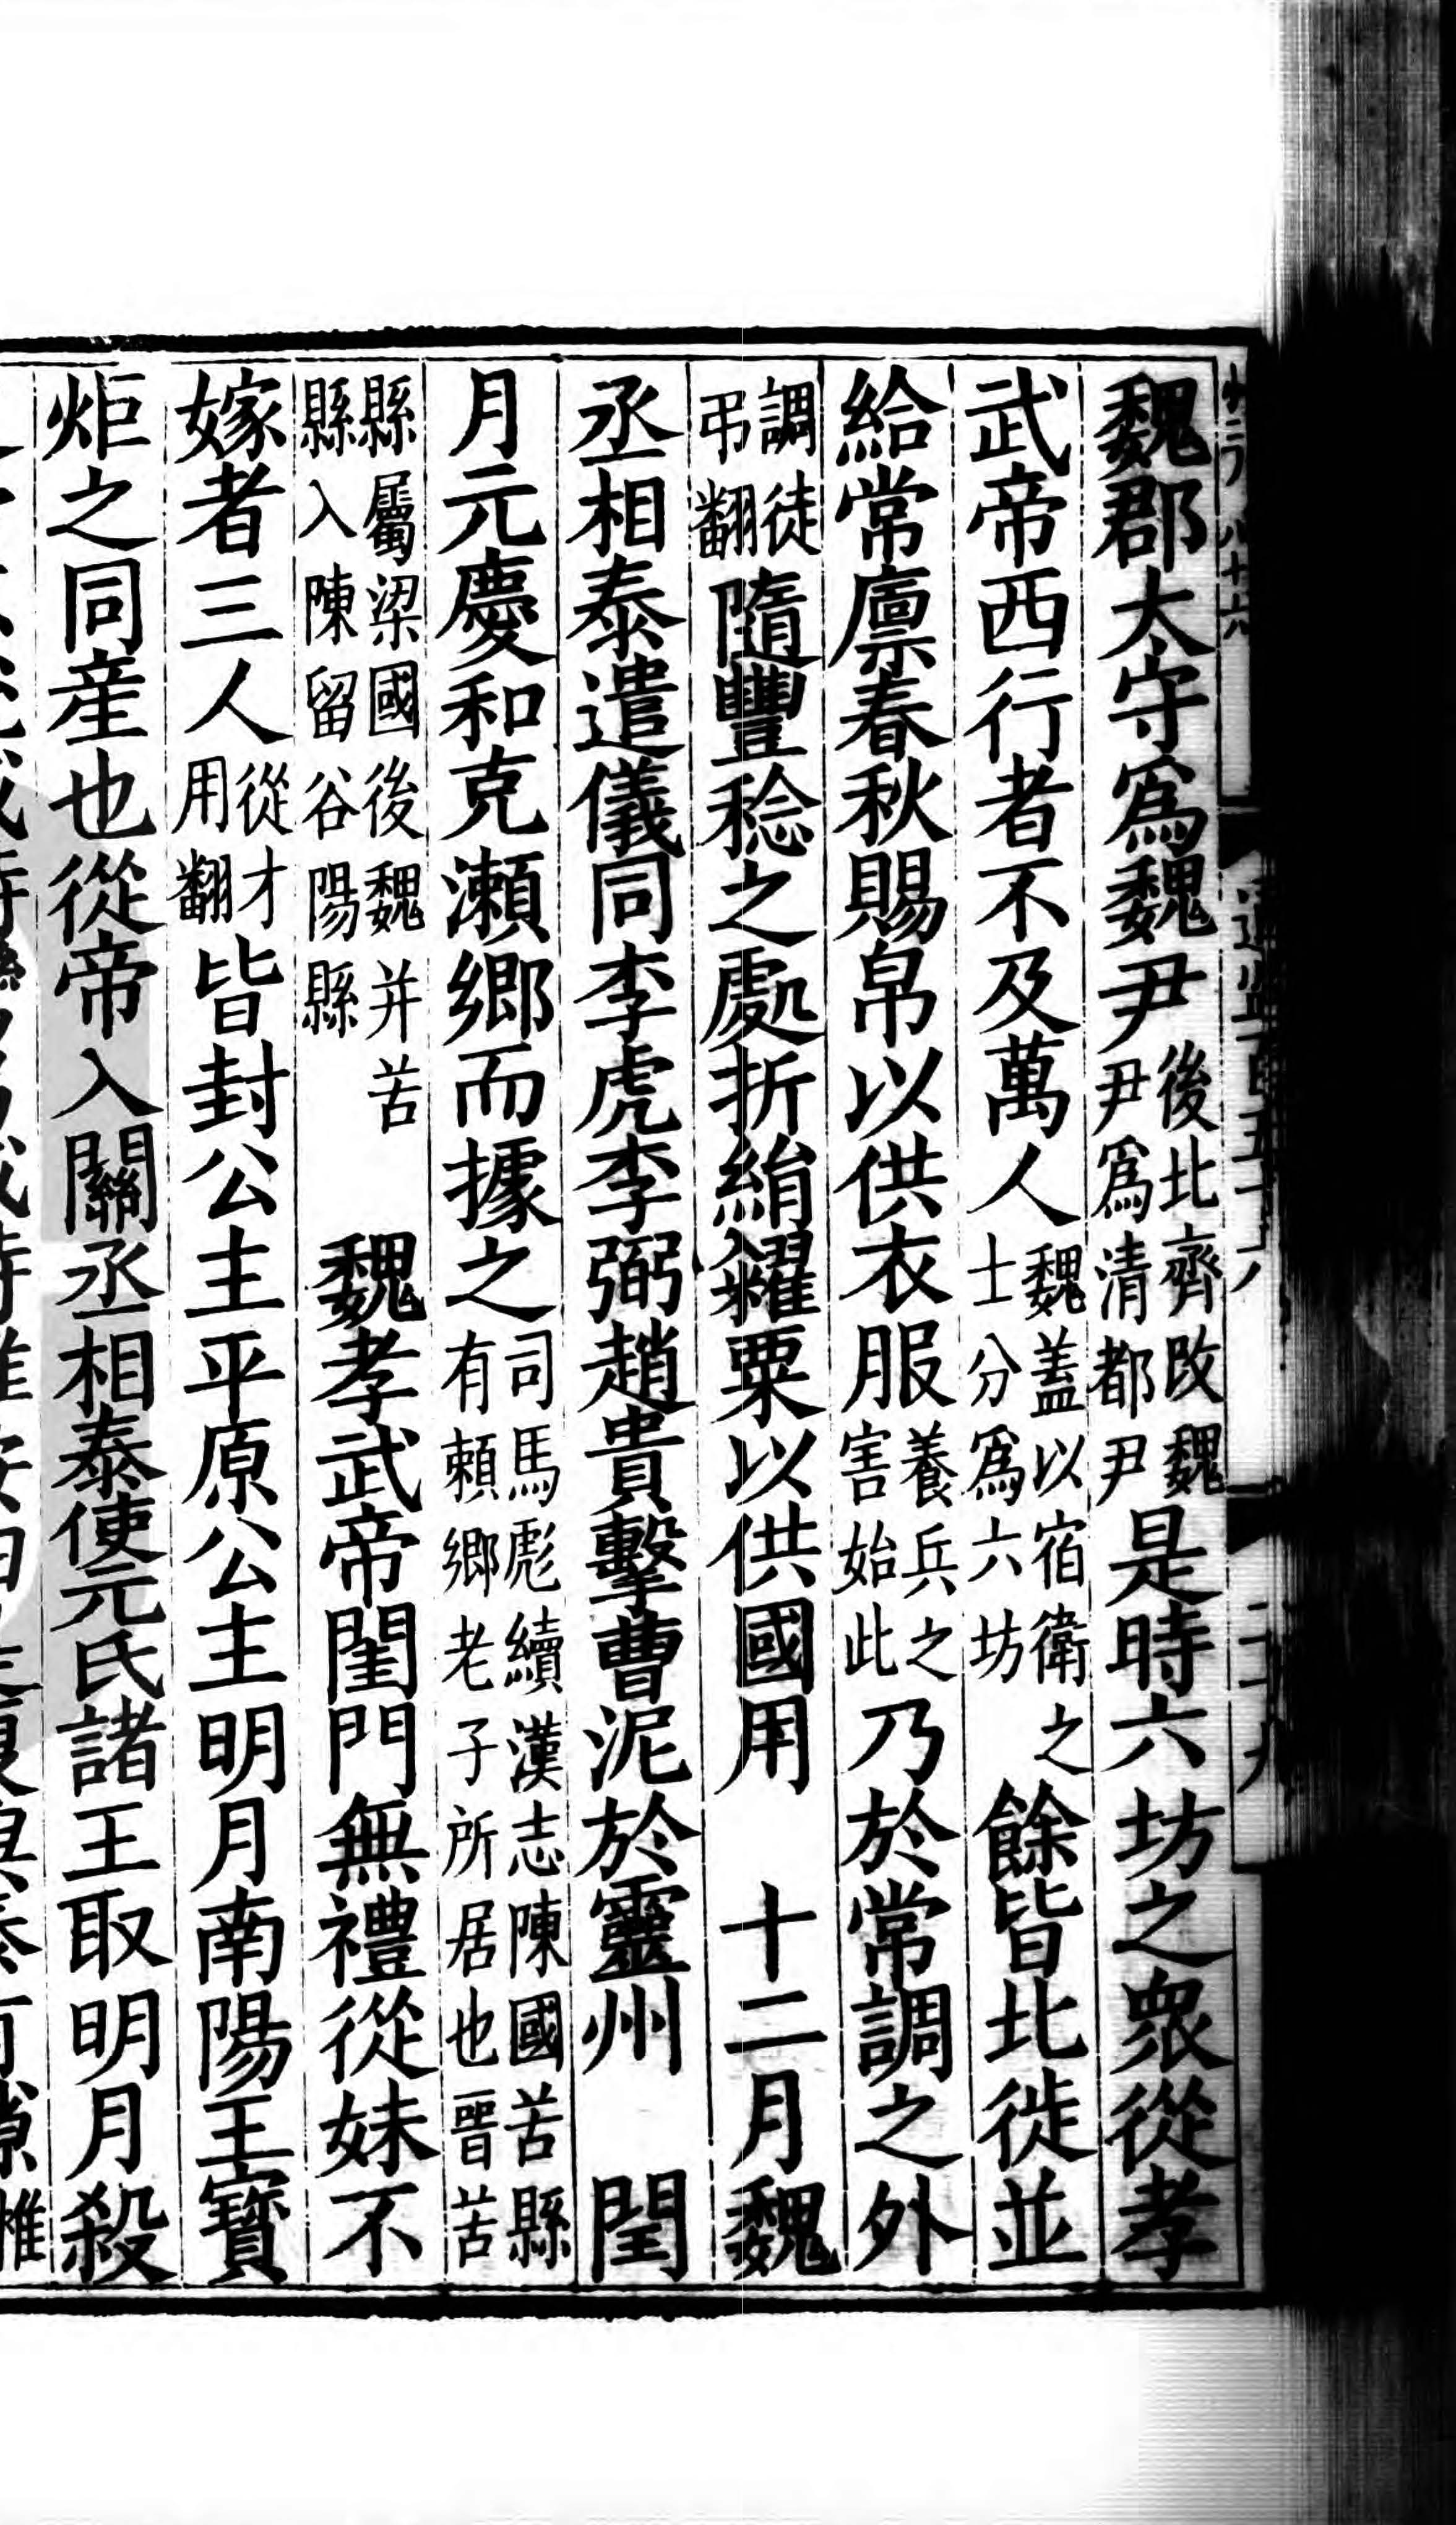 魏郡太守爲魏尹後北齊改魏尹爲清都尹是時六坊之衆從孝
武帝西行者不及萬人魏蓋以宿衛之士分爲六坊餘皆北徙並
給常廪春秋賜帛以供衣服養兵之害始此乃於常調之外
調徒弔翻隨豐稔之處折絹糴粟以供國用　十二月魏
丞相泰遣儀同李虎李弼趙貴擊曹泥於靈州　閏
月元慶和克瀨鄉而據之司馬彪續漢志陳國苦縣有賴鄉老子所居也晉苦
縣屬梁國後魏并苦縣入陳留谷陽縣　魏孝武帝閨門無禮從妹不
嫁者三人從才用翻皆封公主平原公主明月南陽王寶
炬之同産也從帝入關丞相泰使元氏諸王取明月殺